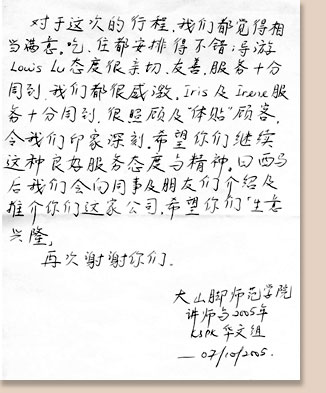 对于这次的行程，我们都觉得相
当满意。吃、住都安排得不错；导游
Louis Lu 态度很亲切、友善，服务十分
周到，我们都很感激。Iris 及 Irene 服
务十分周到，很照顾及“体贴”顾客，
令我们印象深刻。希望你们继续
这种良好服务态度与精神。回西马
后我们会向同事及朋友们介绍及
推介你们这家公司。希望你们「生意
兴隆」
再次谢谢你们。
大山脚师范学院
讲师与2005年
KSPK 华文组
— 07/10/2005.